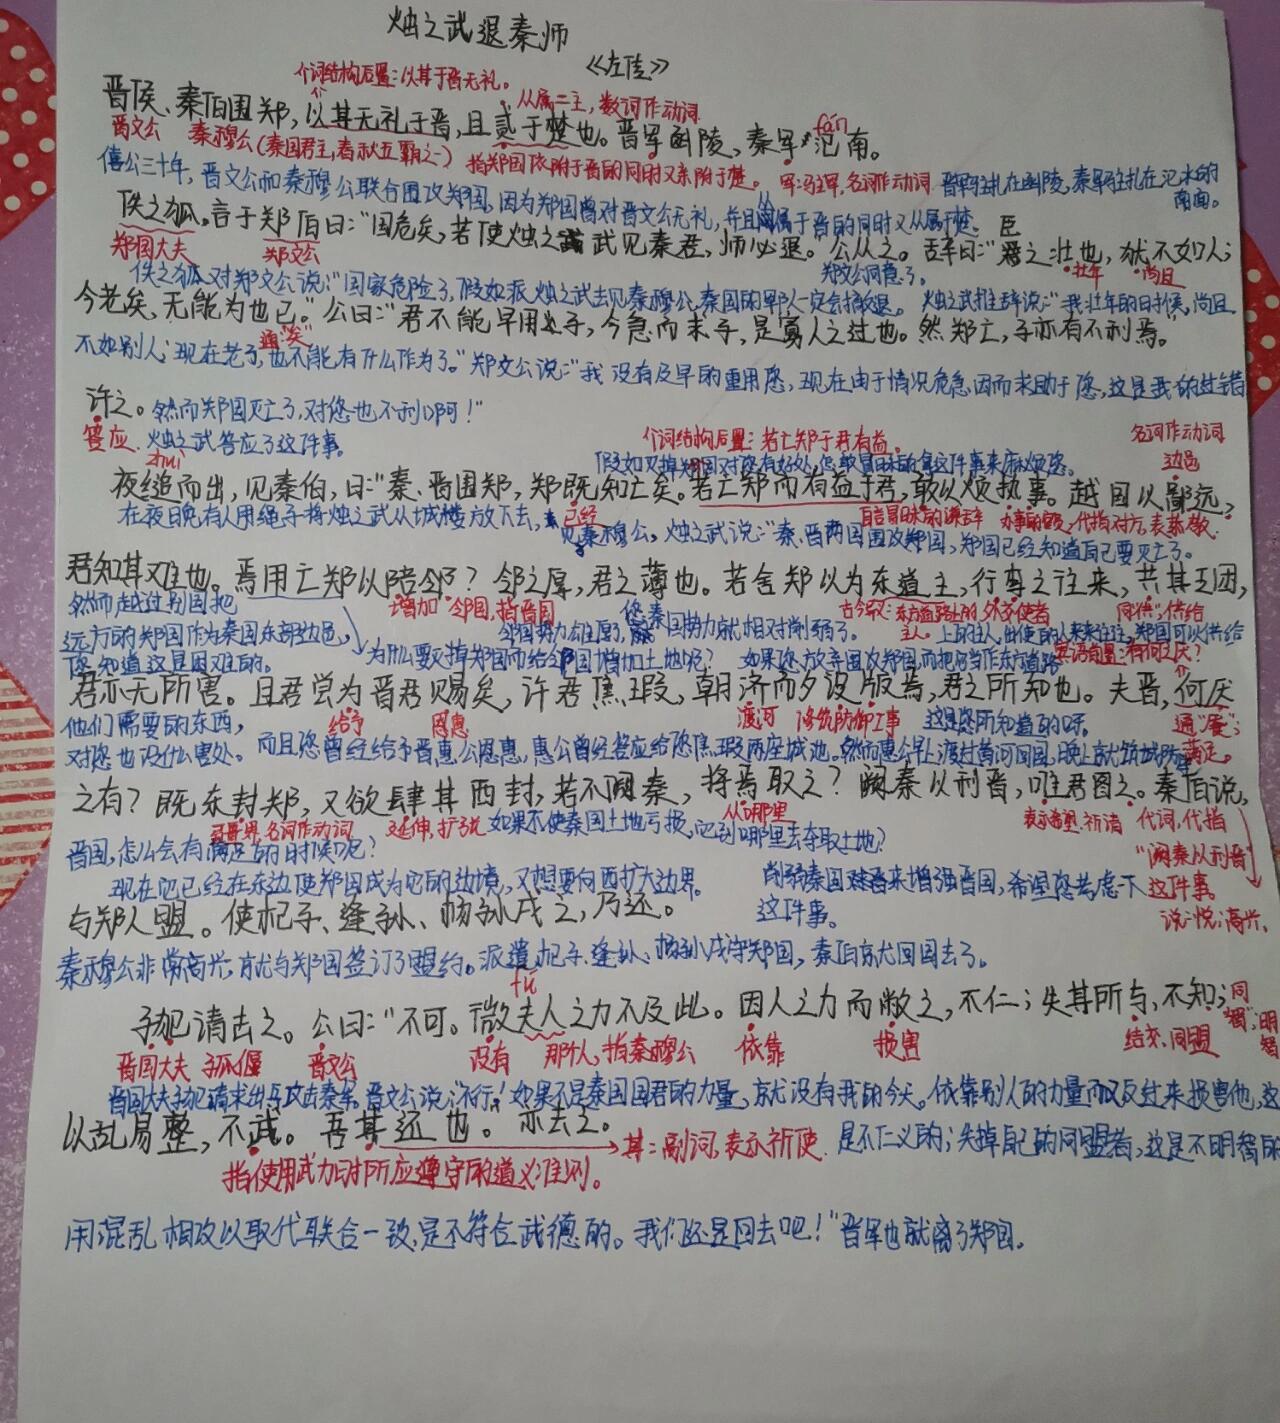 烛之武退秦师
《左传》
介词结构后置：以其于晋无礼。
从属二主，数词作动词
晋侯、秦伯围郑，以其无礼于晋，且贰于楚也。晋军函陵，秦军氾南。
fán
晋文公 秦穆公(秦国君主，春秋五霸之一) 指郑国依附于晋的同时又亲附于楚。 军：驻军，名词作动词
僖公三十年，晋文公和秦穆公联合围攻郑国，因为郑国曾对晋文公无礼，并且从属于晋的同时又从属于楚。
晋军驻扎在函陵，秦军驻扎在氾水的南面。
佚之狐言于郑伯曰："国危矣，若使烛之武见秦君，师必退。"公从之。辞曰："臣之壮也，犹不如人；
郑国大夫 郑文公 郑文公同意了。 壮年 尚且
佚之狐对郑文公说："国家危险了，假如派烛之武去见秦穆公，秦国的军队一定会撤退。 烛之武推辞说："我壮年的时候，尚且
今老矣，无能为也已。"公曰："君不能早用子，今急而求子，是寡人之过也。然郑亡，子亦有不利焉。"
通"矣"
不如别人；现在老了，也不能有什么作为了。"郑文公说："我没有及早的重用您，现在由于情况危急，因而求助于您，这是我的过错
许之。然而郑国灭亡了，对您也不利啊！"
答应 烛之武答应了这件事。
介词结构后置：若亡郑于君有益。
名词作动词
zhuì
假如灭掉郑国对您有好处，怎敢冒昧的拿这件事来麻烦您。
边邑
夜缒而出，见秦伯，曰："秦、晋围郑，郑既知亡矣。若亡郑而有益于君，敢以烦执事。越国以鄙远，
已经 自言冒昧的谦辞 办事的官员，代指对方，表恭敬
在夜晚有人用绳子将烛之武从城楼放下去，见秦穆公，烛之武说："秦、晋两国围攻郑国，郑国已经知道自己要灭亡了。
君知其难也。焉用亡郑以陪邻？邻之厚，君之薄也。若舍郑以为东道主，行李之往来，共其乏困，
增加 邻国，指晋国 古今异：东方道路上的主人。 外交使者 同"供"，供给
然而越过别国把远方的郑国作为秦国东部边邑，您知道这是困难的。
为什么要灭掉郑国而给邻国增加土地呢？
邻国势力雄厚，您秦国势力就相对削弱了。
如果您放弃围攻郑国而把它当作东方道路上的主人，出使的人来来往往，郑国可以供给
宾语前置：有何之厌？
君亦无所害。且君尝为晋君赐矣，许君焦、瑕，朝济而夕设版焉，君之所知也。夫晋，何厌
他们需要的东西，
给予 恩惠 渡河 修筑防御工事 这是您所知道的呀。 通"餍"；满足。
对您也没什么害处。而且您曾经给予晋惠公恩惠，惠公曾经答应给您焦、瑕两座城池。然而惠公早上渡过黄河回国，晚上就筑城防
之有？既东封郑，又欲肆其西封，若不阙秦，将焉取之？阙秦以利晋，唯君图之。秦伯说，
从哪里
疆界，名词作动词 延伸，扩张 表示希望、祈请 代词，代指"阙秦以利晋"这件事。
晋国，怎么会有满足的时候呢？
如果不使秦国土地亏损，它到哪里去夺取土地？
现在它已经在东边使郑国成为它的边境，又想要向西扩大边界。
削弱秦国来增强晋国，希望您考虑一下这件事。
说：悦；高兴。
与郑人盟。使杞子、逢孙、杨孙戍之，乃还。
秦穆公非常高兴，就与郑国签订了盟约。派遣杞子、逢孙、杨孙戍守郑国，秦伯就回国去了。
fú
子犯请击之。公曰："不可。微夫人之力不及此。因人之力而敝之，不仁；失其所与，不知；
晋国大夫 狐偃 晋文公 没有 那个人，指秦穆公 依靠 损害 结交、同盟 同"智"；明智
晋国大夫子犯请求出兵攻击秦军。晋文公说："不行！如果不是秦国国君的力量，就没有我的今天。依靠别人的力量而又反过来损害他，这
以乱易整，不武。吾其还也。亦去之。
其：副词，表示祈使
是不仁义的；失掉自己的同盟者，这是不明智的
指使用武力时所应遵守的道义准则。
用混乱相攻以取代联合一致，是不符合武德的。我们还是回去吧！"晋军也就离了郑国。